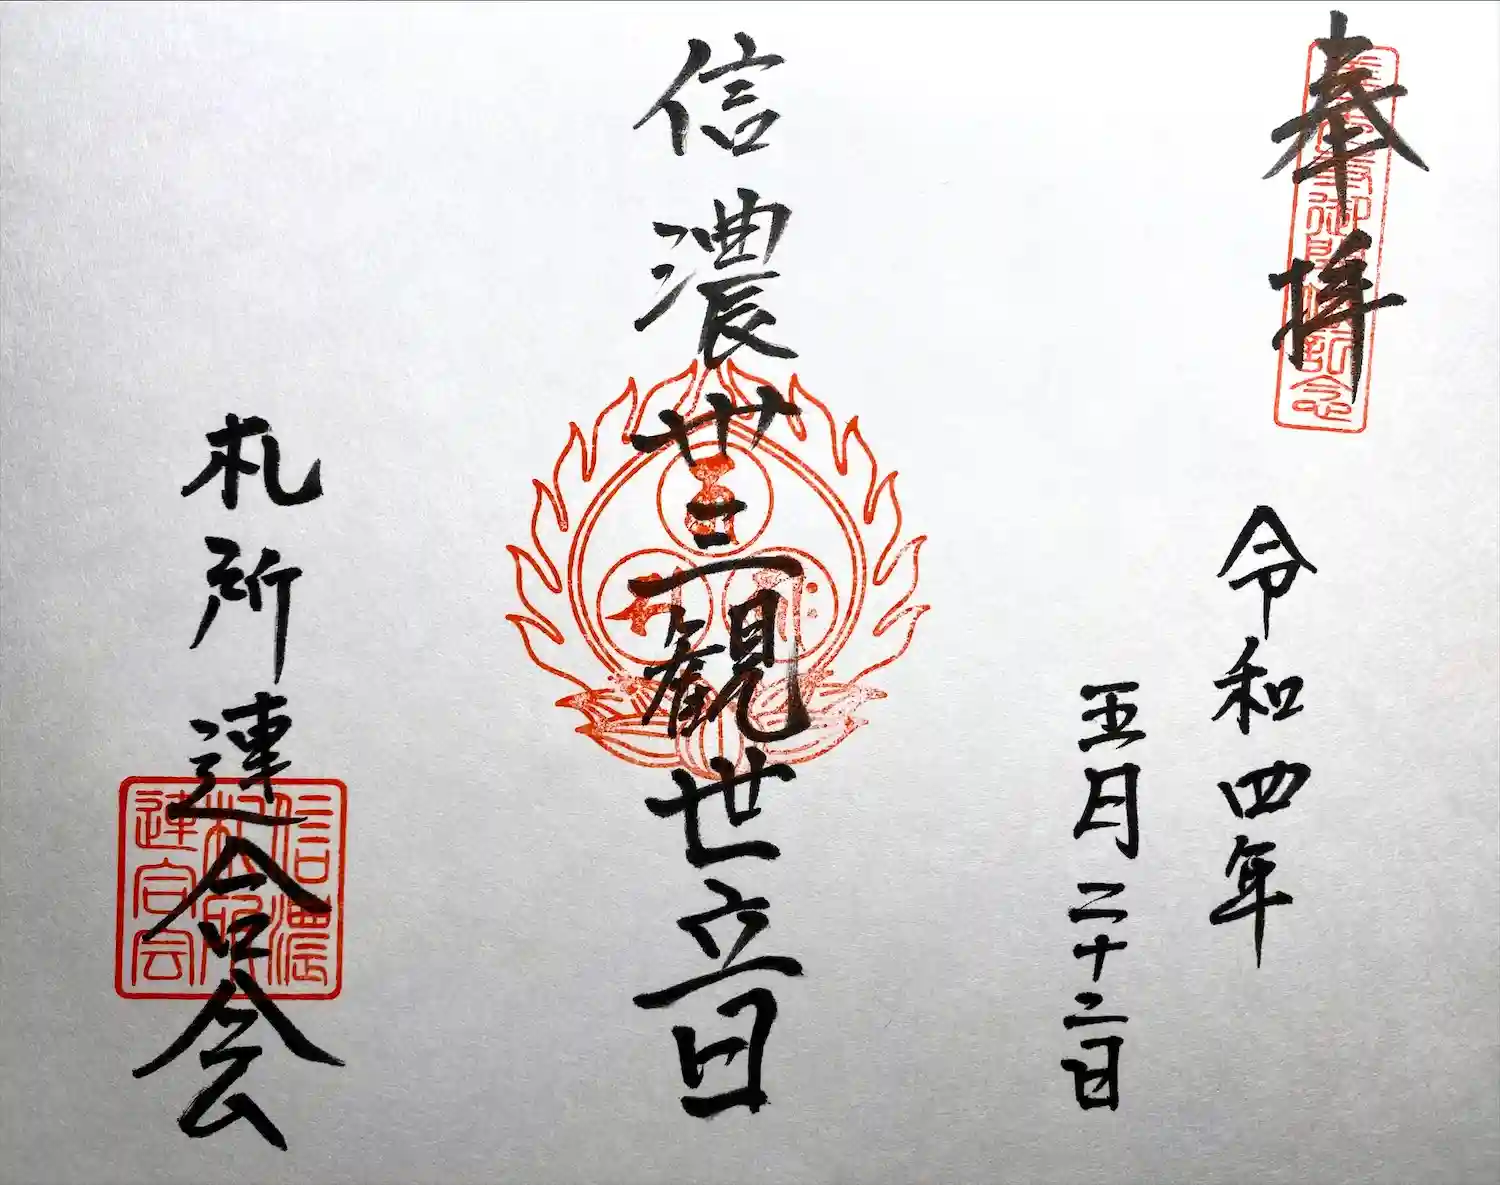 奉拝
善光寺御開帳記念
令和四年
五月二十二日
信濃卅三観世音
札所連合会
信濃
札所
連合会